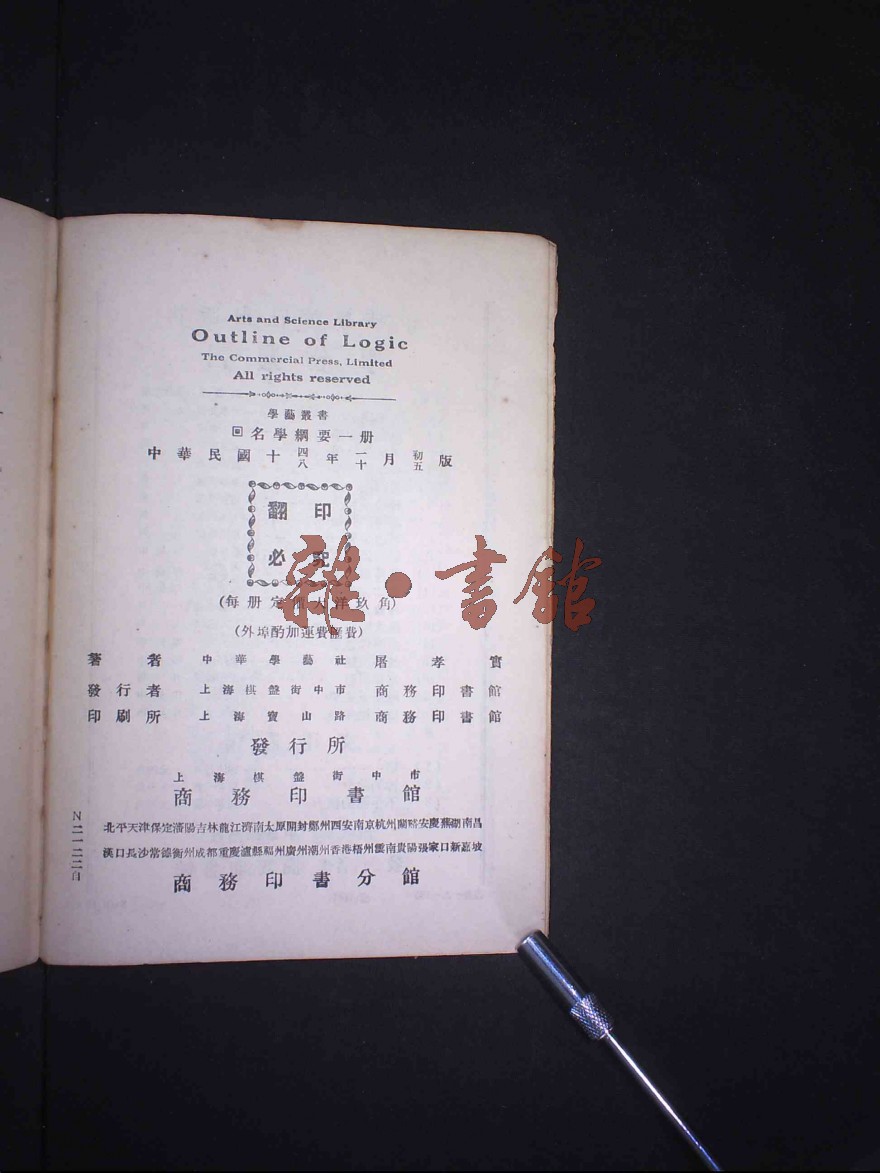 Arts and Science Library
Outline of Logic
The Commercial Press, Limited
All rights reserved
學藝叢書
回名學綱要一册
中華民國十四八年一二十月初五版
翻印
必究
(每册定價大洋玖角)
(外埠酌加運費匯費)
著者 中華學藝社 屠孝實
發行者 上海棋盤街中市 商務印書館
印刷所 上海寶山路 商務印書館
發行所
上海棋盤街中市
商務印書館
北平天津保定瀋陽吉林龍江濟南太原開封鄭州西安南京杭州蘭谿安慶蕪湖南昌
漢口長沙常德衡州成都重慶瀘縣福州廣州潮州香港梧州雲南貴陽張家口新嘉坡
商務印書分館
N二一二二自
雜·書館